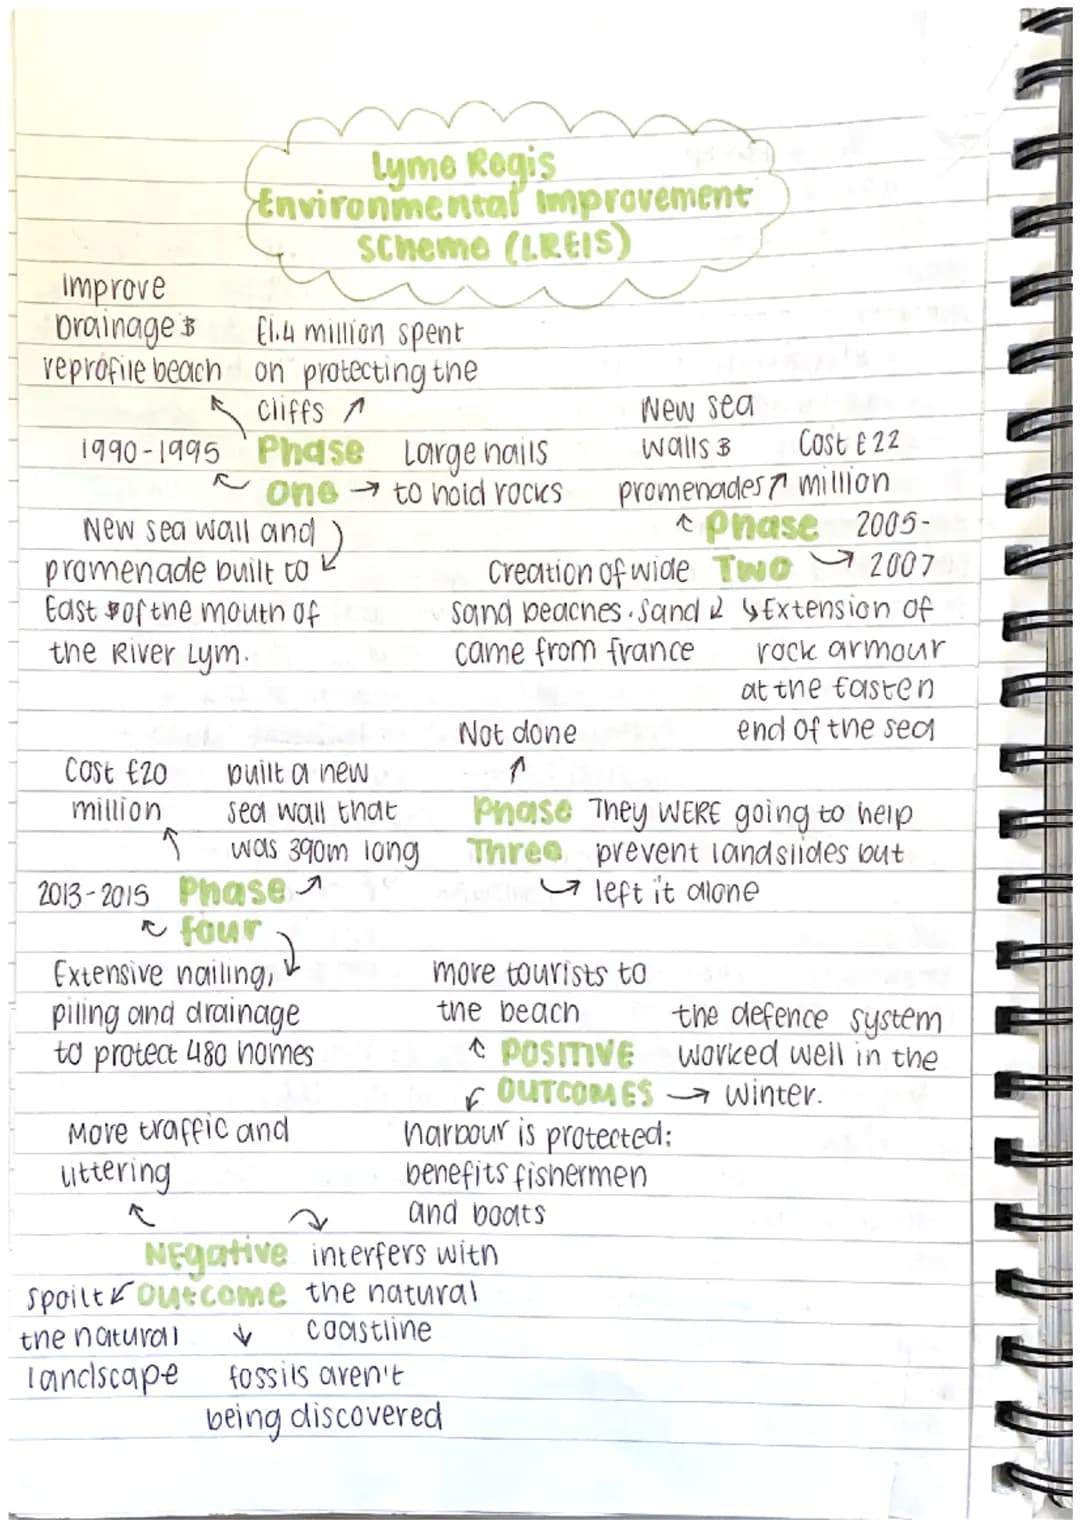 Lyme Regis
Environmental Improvement
Scheme (LREIS)
improve
Drainage &
reprofile beach
£1.4 million spent
on protecting the
cliffs
1990-1995
Phase
One
Large nails
to hold rocks
New sea wall and
promenade built to
East of the mouth of
the River Lym.
New sea
walls &
promenades
Cost £22
million
Phase
Two
2005-
2007
Creation of wide
sand beaches. Sand
came from france
Extension of
rock armour
at the Easten
end of the sea
Not done
Phase
Three
They WERE going to help
prevent landslides but
left it alone
Cost £20
million
built a new
sea wall that
was 390m long
2013-2015
Phase
four
Extensive nailing,
piling and drainage
to protect 480 homes
more tourists to
the beach
the defence system
worked well in the
winter.
POSITIVE
OUTCOMES
harbour is protected:
benefits fishermen
and boats
More traffic and
littering
NEgative
Outcome
interfers with
the natural
coastline
spoilt
the natural
landscape
fossils aren't
being discovered